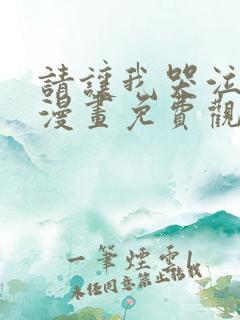 請讓我哭泣
漫畫免費觀
一筆煙雲
未经同意禁止转载